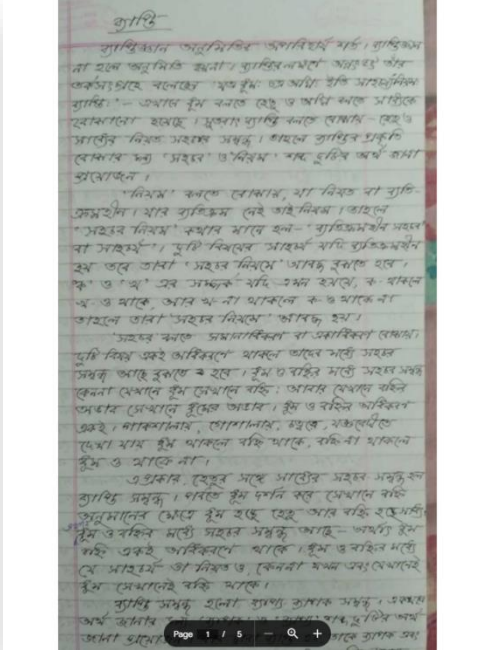 ব্যাপ্তি
ব্যাপ্তিজ্ঞান অনুমিতির অপরিহার্য শর্ত। ব্যাপ্তিজ্ঞান
না হলে অনুমিতি হয়না। ব্যাপ্তির লক্ষণে অন্নংভট্ট তাঁর
তর্কসংগ্রহে বলেছেন 'যত্র ধূম তত্র অগ্নি ইতি সাহচর্যনিয়ম
ব্যাপ্তি।' – এখানে ধূম বলতে হেতু ও অগ্নি বলতে সাধ্যকে
বোঝানো হয়েছে। সুতরাং ব্যাপ্তি বলতে বোঝায় – হেতু ও
সাধ্যের নিয়ত সহচর সম্বন্ধ। তাহলে ব্যাপ্তির প্রকৃতি
বোঝার জন্য 'সহচর' ও 'নিয়ম' শব্দ দুটির অর্থ জানা
প্রয়োজন।
'নিয়ম' বলতে বোঝায়, যা নিয়ত বা ব্যতি-
ক্রমহীন। যার ব্যতিক্রম নেই তাই নিয়ম। তাহলে
'সহচর নিয়ম' কথার মানে হল – 'ব্যতিক্রমহীন সহচর'
বা সাহচর্য'। দুটি বিষয়ের সাহচর্য যদি ব্যতিক্রমহীন
হয় তবে তারা 'সহচর নিয়মে' আবদ্ধ বুঝতে হবে।
'ক' ও 'খ' এর সম্পর্ক যদি এমন হয় যে, ক থাকলে
খ ও থাকে, আর খ না থাকলে ক ও থাকে না
তাহলে তারা 'সহচর নিয়মে' আবদ্ধ হয়।
'সহচর' বলতে সমানাধিকরণ বা একাধিকরণ বোঝায়।
দুটি বিষয় একই অধিকরণে থাকলে তাদের মধ্যে সহচর
সম্বন্ধ আছে বুঝতে হবে। ধূম ও বহ্নির মধ্যে সহচর সম্বন্ধ
কেননা যেখানে ধূম সেখানে বহ্নি; আবার যেখানে বহ্নির
অভাব সেখানে ধূমের অভাব। ধূম ও বহ্নির অধিকরণ
একই। পাকশালায়, গোশালায়, চত্বরে, যজ্ঞবেদীতে
দেখা যায় ধূম থাকলে বহ্নি থাকে, বহ্নি না থাকলে
ধূম ও থাকে না।
এপ্রকার, হেতুর সঙ্গে সাধ্যের সহচর সম্বন্ধ হল
ব্যাপ্তি সম্বন্ধ। পর্বতে ধূম দর্শন করে সেখানে বহ্নি
অনুমানের ক্ষেত্রে ধূম হচ্ছে হেতু আর বহ্নি হচ্ছে সাধ্য।
ধূম ও বহ্নির মধ্যে সহচর সম্বন্ধ আছে – অর্থাৎ ধূম
বহ্নি একই অধিকরণে থাকে। ধূম ও বহ্নির মধ্যে
যে সাহচর্য তা নিয়তও, কেননা যখন এবং যেখানেই
ধূম সেখানেই বহ্নি থাকে।
ব্যাপ্তি সম্বন্ধ হলো ব্যাপ্য ব্যাপক সম্বন্ধ।
অর্থ জানার শব্দ দুটির অর্থ
জানা ব্যাপক এবং
Page 1 / 5